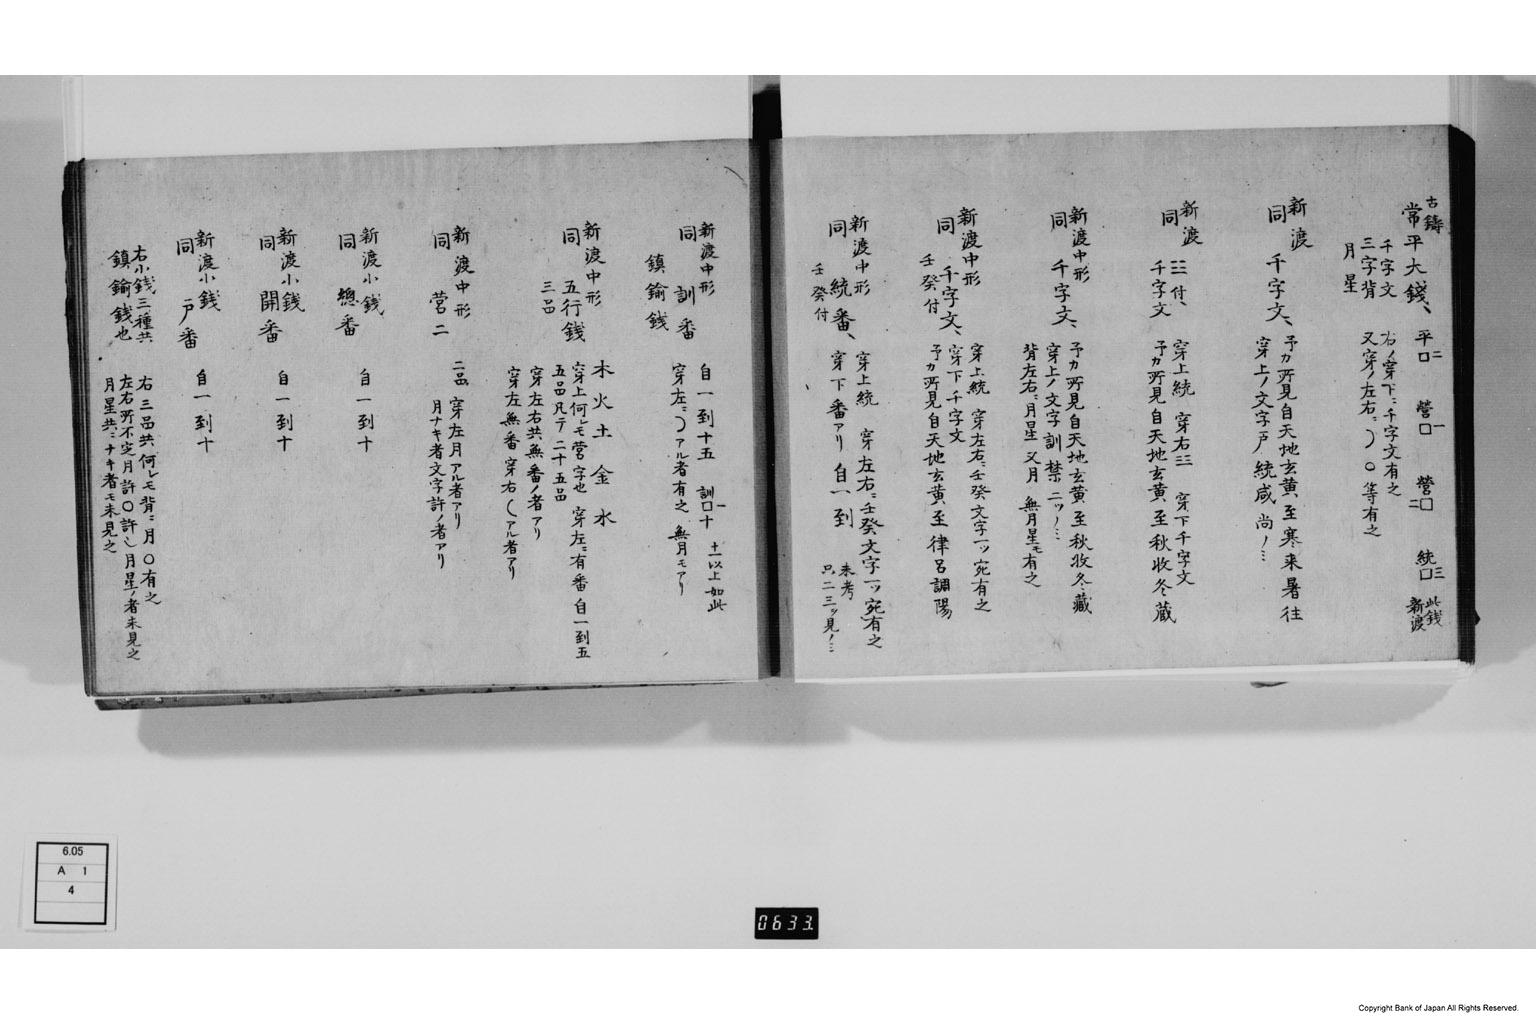 古鋳
常平大錢、
千字文
三字背
月星
右ノ穿下ニ千字文有之
又穿ノ左右ニ ） 〇等有之
平口二
營口一
營口二
統口三
此銭
新渡
新渡
同 千字文、
予カ所見自天地玄黄至寒来暑往
穿上ノ文字戸統咸尚ノミ
新渡
同 三付、
千字文
穿上統 穿右三 穿下千字文
予カ所見自天地玄黄至秋收冬蔵
新渡中形
同 千字文、
予カ所見自天地玄黄至秋收冬藏
穿上ノ文字訓禁二ツノミ
背左右ニ月星又月 無月星モ有之
新渡中形
同 千字文、
壬癸付
穿上統 穿左右ニ壬癸文字一ツ宛有之
穿下千字文
予カ所見自天地玄黄至律呂調陽
新渡中形
同 統番、
壬癸付
穿上統 穿左右ニ壬癸文字一ツ宛有之
穿下番アリ 自一到
未考
只二三ツ見ノミ
新渡中形
同 訓番
鎮鍮銭
自一到十五 訓口十一
十一以上如此
穿左ニ）アル者有之 無月モアリ
新渡中形
同 五行銭
三品
木火土金水
穿上何レモ营字也 穿左ニ有番自一到五
五品凡テ二十五品
穿左右共無番ノ者アリ
穿左無番 穿右（アル者アリ
新渡中形
同 营二
二品 穿左月アル者アリ
月ナキ者文字許ノ者アリ
新渡小銭
同 總番
自一到十
新渡小銭
同 開番
自一到十
新渡小銭
同 戸番
自一到十
右小銭三種共
鎮鍮銭也
右三品共何レモ背ニ月〇有之
左右所不定月許〇許也月星ノ者未見之
月星共ニナキ者モ未見之
6.05
A 1
4
0633.
Copyright Bank of Japan All Rights Reserved.